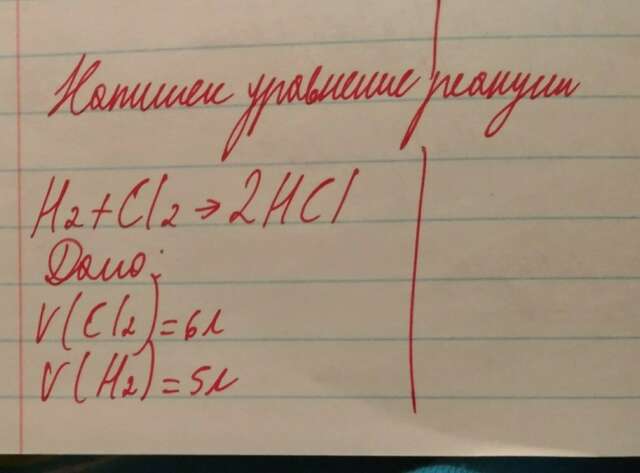 Напишем уравнение реакции
H2+Cl2→2HCl
Дано:
V(Cl2)=6л
V(H2)=5л